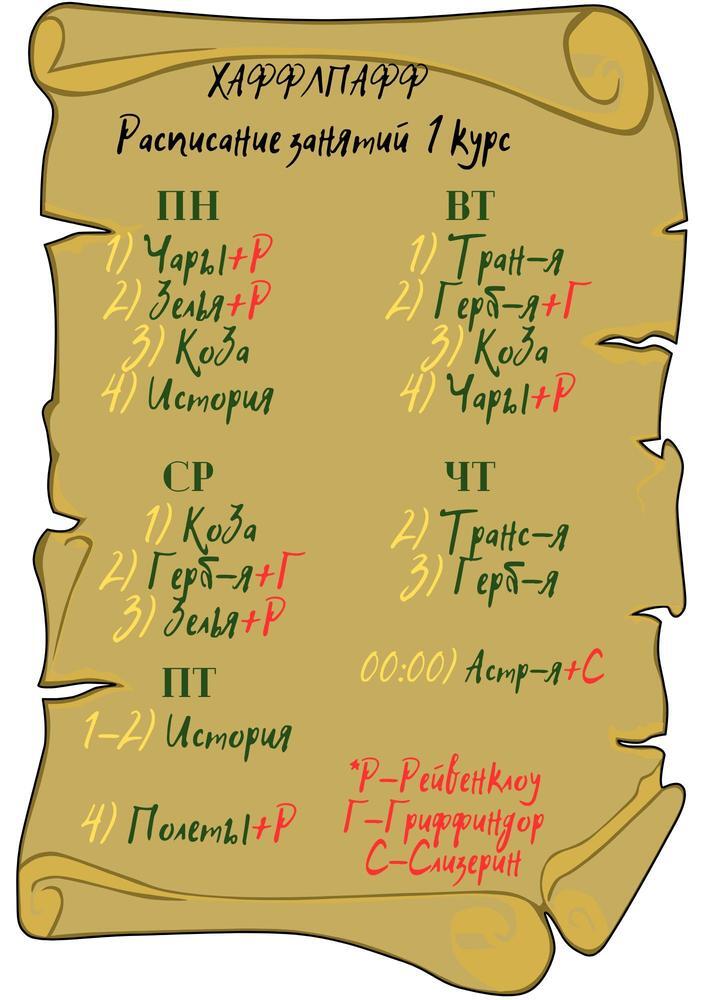 ХАФФЛПАФФ
Расписание занятий 1 курс
ПН
1) Чары+Р
2) Зелья+Р
3) КоЗа
4) История
ВТ
1) Тран-я
2) Герб-я+Г
3) КоЗа
4) Чары+Р
СР
1) КоЗа
2) Герб-я+Г
3) Зелья+Р
ЧТ
2) Транс-я
3) Герб-я
00:00) Астр-я+С
ПТ
1-2) История
4) Полеты+Р
*Р-Рейвенклоу
Г-Гриффиндор
С-Слизерин